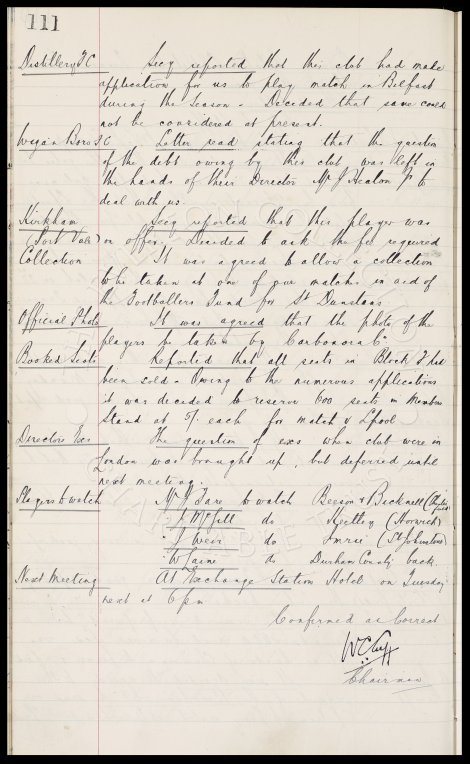 111
Distillery F.C Secy reported that this club had made
application for us to play match in Belfast
during the season - Decided that same could
not be considered at present.
Wigan Boro F C Letter read stating that the question
of the debt owing by this club was left in
the hands of their Director Mr J Healon Jr to
deal with us.
Kirkham Secy reported that this player was
(Port Vale) on offer. Decided to ask the fee required
Collection It was agreed to allow a collection
to be taken at one of our matches in aid of
the Footballers Fund for St Dunstans
Official Photo It was agreed that the photo of the
players be taken by Carbonora Co
Booked Seats Reported that all seats in Block had
been sold - Owing to the numerous applications
it was decided to reserve 600 seats in Members
Stand at 5/- each for match v Lpool
Directors Exs The question of exes when club were in
London was brought up, but deferred until
next meeting.
Players to watch Mr Fare to watch Beeson & Bicknell (Chesterfield)
" J McGill do Keetley (Horwich)
" J Weir do Imrie (St Johnstone)
" W Laine do Durham County back.
Next Meeting At Exchange Station Hotel on Tuesday
next at 6 pm
Confirmed as Correct
W C Cuff
Chairman